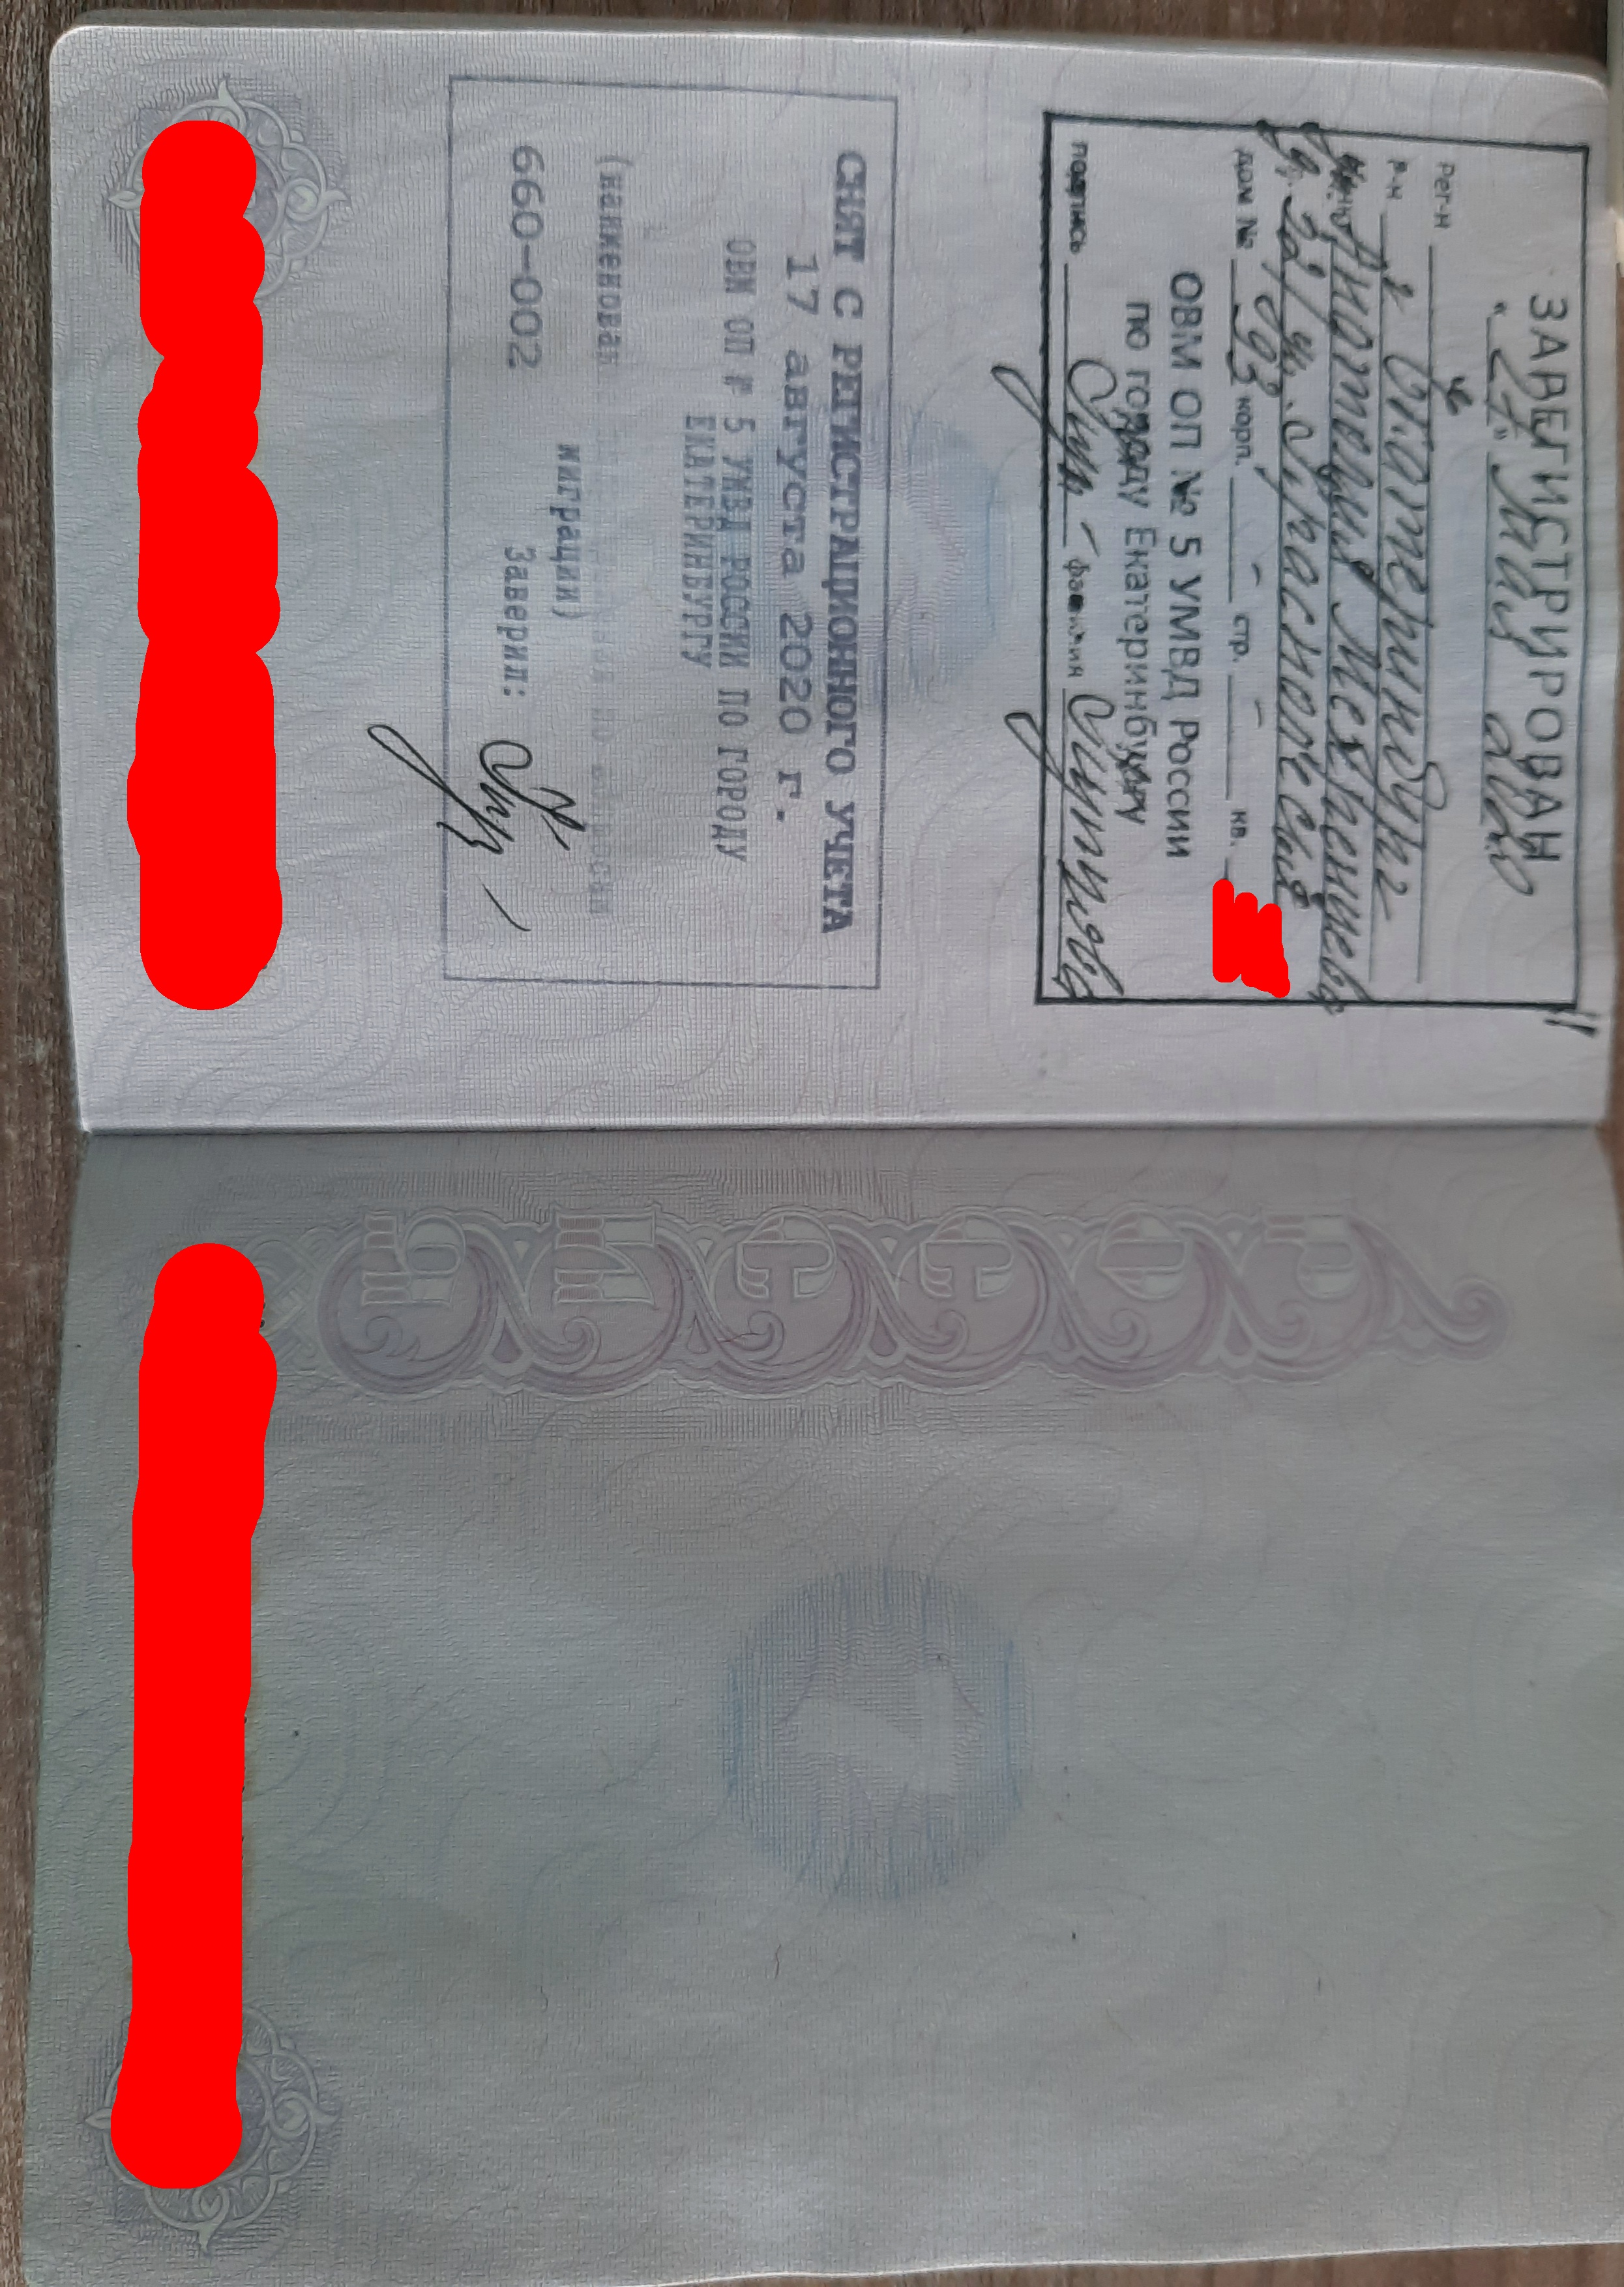 ЗАРЕГИСТРИРОВАН
2020
Рег-н
Р-н г. Екатеринбург
Анатолия Мехренцева
д. 32/ ул. Краснолесья
дом № 93 корп. - стр. - кв.
ОВМ ОП № 5 УМВД России
по городу Екатеринбургу
подпись фамилия
СНЯТ С РЕГИСТРАЦИОННОГО УЧЕТА
17 августа 2020 г.
ОВМ ОП № 5 УМВД РОССИИ ПО ГОРОДУ
ЕКАТЕРИНБУРГУ
(наименован
миграции)
660-002 Заверил:
РОССИЯ